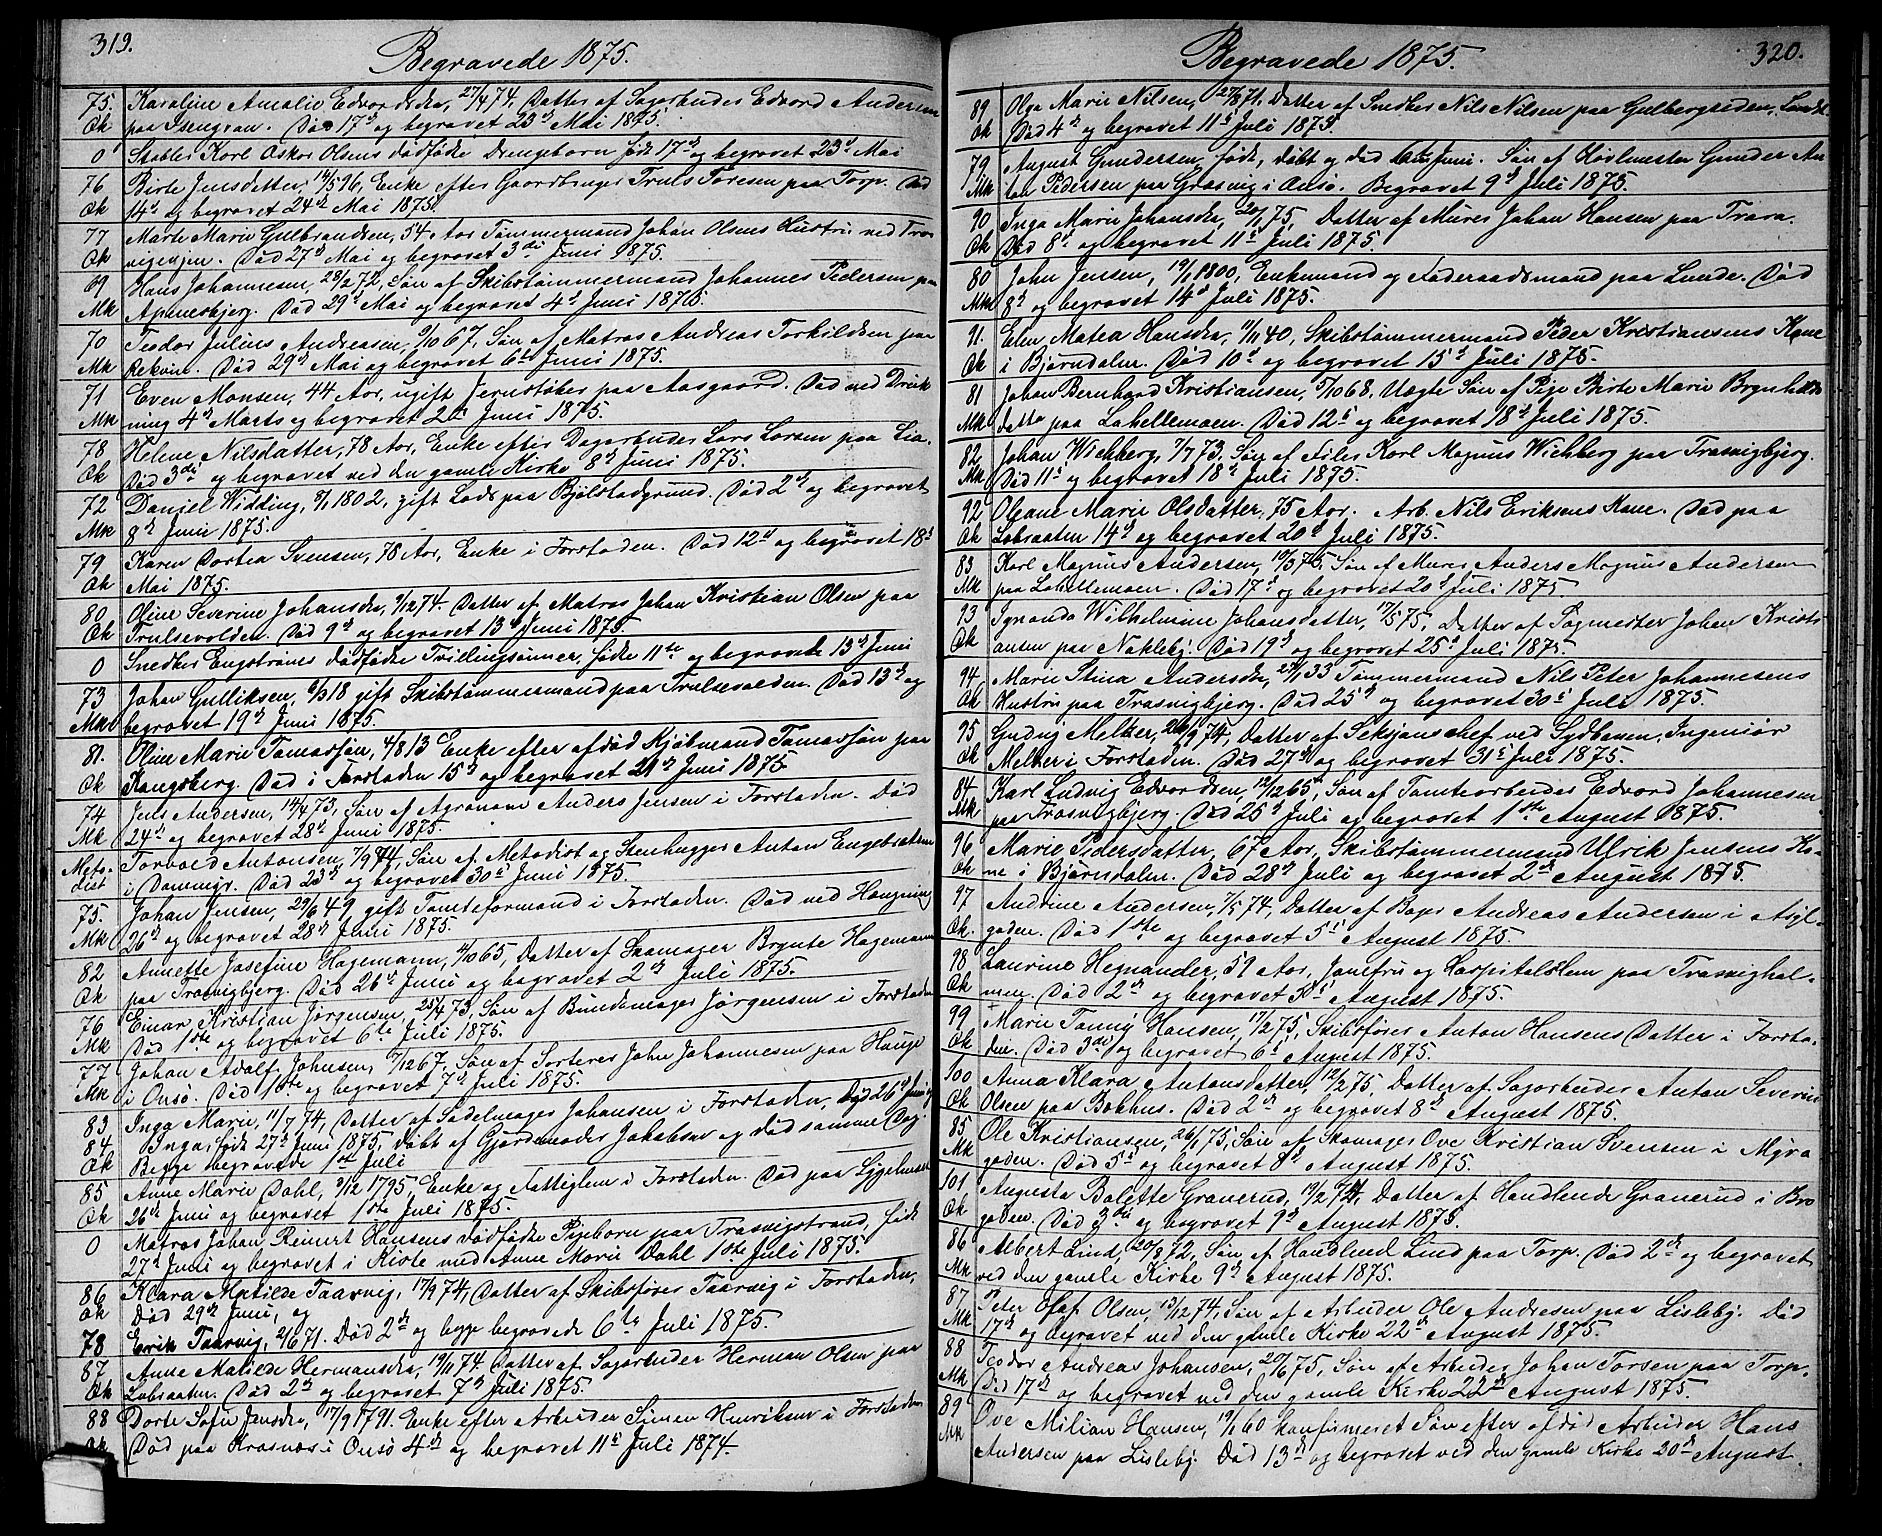 319.
Begravede 1875.
75. Karoline Amalie Edvardsdtr, 27/4 74, Datter af Sagarbuder Edvard Andersen
Qk paa Isengran. Død 17d og begravet 23d Mai 1875.
0 Stabler Karl Oskar Olsens dødfødte Drengebarn født 17d og begravet 23d Mai
76 Birte Jensdatter, 14/5 96, Enke efter Gaardbruger Truls Toresen paa Torp. Død
Qk 14d og begravet 24d Mai 1875.
77 Marte Marie Gulbrandsen, 54 Aar Tømmermand Johan Olsens Hustru ved Tras-
Qk vigeøjen. Død 27d Mai og begravet 3die Juni 1875.
69 Hans Johannesen, 28/2 72, Søn af Skibstømmermand Johannes Pedersen paa
Mk Apenesbjerg. Død 29d Mai og begravet 4d Juni 1875.
70 Teodor Julius Andreasen, 9/10 67, Søn af Matros Andreas Torkildsen paa
Mk Rekvin. Død 29d Mai og begravet 6te Juni 1875.
71 Even Monsen, 44 Aar, ugift Jernstøber paa Aasgaard. Død ved Druk-
Mk ning 4d Marts og begravet 2d Juni 1875.
78 Helene Nilsdatter, 78 Aar, Enke efter Dagarbuder Lars Larsen paa Lia.
Qk Død 3die og begravet ved den gamle Kirke 8d Juni 1875.
72 Daniel Widding, 1802, gift Lods paa Bjølstadgrund. Død 2d og begravet
Mk 8d Juni 1875.
79 Karen Dortea Svensen, 78 Aar, Enke i Forstaden. Død 12d og begravet 18d
Qk Mai 1875.
80 Oline Severine Johansdtr, 9/12 74. Datter af Matros Johan Kristian Olsen paa
Qk Trulsevolden. Død 9d og begravet 13d Juni 1875.
0 Snedker Engstrøms dødfødte Tvillingsønner, fødte 11te og begravede 13d Juni
73 Johan Gulliksen, 18 gift Skibstømmermand paa Trulsevolden. Død 13d og
Mk begravet 19d Juni 1875.
81. Oline Marie Tomassøn, 4/8 13 Enke efter afdød Kjøbmand Tomassøn paa
Qk Kongsberg. Død i Forstaden 15d og begravet 21d Juni 1875.
74 Jens Andersen, 14/4 73, Søn af Agronom Anders Jensen i Forstaden. Død
Mk 24d og begravet 28d Juni 1875.
Meto- Torvald Antonsen, 7/9 74, Søn af Metodist og Stenhugger Anton Engebretsen
dist i Dammyr. Død 23d og begravet 30d Juni 1875.
75. Johan Jensen, 29/6 49 gift Tomteformand i Forstaden. Død ved Hængning
Mk 26d og begravet 28d Juni 1875.
82 Annette Josefine Hagemann, 4/10 65, Datter af Skomager Brynte Hagemann
Qk paa Trosvigbjerg. Død 26d Juni og begravet 2d Juli 1875.
76 Einar Kristian Jørgensen, 25/4 73, Søn af Bundtmager Jørgensen i Forstaden
Mk Død 1ste og begravet 6te Juli 1875.
77 Johan Adolf Johnsen, 7/12 67, Søn af Sorterer John Johannesen paa Hauge
Mk i Onsø. Død 1ste og begravet 7d Juli 1875.
83 Inga Marie, 11/7 74, Datter af Sadelmager Johansen i Forstaden, Død 26d Juni og
84 Inga, født 27d Juni 1875, døbt af Gjordmoder Jakobsen og død samme Dag
Qk Begge begravede 1ste Juli
85 Anne Marie Dahl, 9/12 1795, Enke og Fattiglem i Forstaden. Død paa Sygehuset
Qk 26d Juni og begravet 1ste Juli 1875.
0 Matros Johan Reinert Hansens dødfødte Pigebarn paa Trosvigstrand, født
27d Juni og begravet i Kiste med Anne Marie Dahl 1ste Juli 1875.
86 Klara Matilde Taarvig, 17/9 74, Datter af Skibsfører Taarvig i Forstaden,
Qk Død 29d Juni, og
78 Erik Taarvig, 2/6 71. Død 2d og begge begravede 6te Juli 1875.
87 Anne Matilde Hermansdtr, 19/11 74. Datter af Sagarbuder Herman Olsen paa
Qk Labraaten. Død 2d og begravet 7d Juli 1875.
88 Dorte Sofie Jensdtr, 17/9 1791. Enke efter Arbuder Simen Henriksen i Forstaden
Qk Død paa Krosnæs i Onsø 4d og begravet 11d Juli 1874.
320.
Begravede 1875.
89 Olga Marie Nilsen, 27/6 71, Datter af Snedker Nils Nilsen paa Gulbergsiden, Lunde.
Qk Død 4d og begravet 11d Juli 1875.
79 August Gundersen, født, døbt og død 6te Juni. Søn af Høvlmester Gunder An-
Mk ton Pedersen paa Græsvig i Onsø. Begravet 9d Juli 1875.
90 Inga Marie Johansdtr, 20/1 75, Datter af Murer Johan Hansen paa Trara.
Qk Død 8d og begravet 11d Juli 1875.
80 John Jensen, 19/1 1800, Enkemand og Føderaadsmand paa Lunde. Død
Mk 8d og begravet 14d Juli 1875.
91. Elen Matea Hansdtr, 11/11 40, Skibstømmermand Peder Kristiansens Kone
Qk i Bjørndalen. Død 10d og begravet 15d Juli 1875.
81 Johan Bernhard Kristiansen, 5/10 68. Uægte Søn af Pige Birte Marie Brynhilds-
Mk datter paa Lahellemoen. Død 12d og begravet 18d Juli 1875.
82 Johan Wichberg, 7/7 73. Søn af Filer Karl Magnus Wichberg paa Trosvigbjerg.
Mk Død 11d og begravet 18d Juli 1875.
92 Oleane Marie Olsdatter, 75 Aar. Arb. Nils Eriksens Kone. Død paa
Qk Labraaten 14d og begravet 20d Juli 1875.
83 Karl Magnus Andersen, 19/3 75, Søn af Murer Anders Magnus Andersen
Mk paa Lahellemoen. Død 17d og begravet 20d Juli 1875.
93 Wilhelmine Johansdatter, 17/5 75, Datter af Sagmester Johan Kristi-
Qk ansen paa Nøkleby. Død 19d og begravet 25d Juli 1875.
94 Marie Stina Andersdtr, 27/1 33 Tømmermand Nils Peter Johannesens
Qk Hustru paa Trosvigbjerg. Død 25d og begravet 30d Juli 1875.
95 Gudvig Melker, 20/9 74, Datter af Seksjonschef ved Sydbanen, Ingeniør
Qk Melker i Forstaden. Død 27d og begravet 31d Juli 1875.
84 Karl Ludvig Edvardsen, 12/12 65, Søn af Tomtearbeider Edvard Johannesen
Mk paa Trosvigbjerg. Død 25d Juli og begravet 1ste August 1875.
96 Marie Pedersdatter, 67 Aar, Skibstømmermand Ulrik Jensens Ko-
Qk ne i Bjørndalen. Død 28d Juli og begravet 2d August 1875.
97 Andrine Andersen, 7/5 74, Datter af Bager Andreas Andersen i Asyl-
Qk. gaden. Død 1ste og begravet 5d August 1875.
98 Laurine Hegnander, 59 Aar, Jomfru og Hospitalslem paa Trosvighol-
Qk men. Død 2d og begravet 5d August 1875.
99 Marie Fanny Hansen, 17/2 75, Skibsfører Anton Hansens Datter i Forsta-
Qk den. Død 3die og begravet 6d August 1875.
100 Anna Klara Antonsdatter, 12/2 75, Datter af Sagarbuder Anton Severin
Qk Olsen paa Bokhus. Død 2d og begravet 8d August 1875.
85 Ole Kristiansen, 26/1 75, Søn af Skomager Ove Kristian Svensen i Myra-
Mk gaden. Død 5d og begravet 8d August 1875.
101 Augusta Bolette Granerud, 19/2 74, Datter af Handlende Granerud i Bro-
Qk gaden. Død 3die og begravet 9d August 1875.
86 Albert Lind, 20/8 72, Søn af Handlend Lind paa Torp. Død 2d og begravet
Mk ved den gamle Kirke 9d August 1875.
87 Peter Olaf Olsen, 13/12 74, Søn af Arbuder Ole Andresen paa Lisleby. Død
Mk 17d og begravet ved den gamle Kirke 22d August 1875.
88 Teodor Andreas Johansen, 20/6 75, Søn af Arbuder Johan Torsen paa Torp.
Mk Død 17d og begravet ved den gamle Kirke 22d August 1875.
89 Ove Milian Hansen, 19/1 60 konfirmeret Søn efter afdød Arbuder Hans
Mk Andersen paa Lisleby. Død 13d og begravet ved den gamle Kirke 20d August.